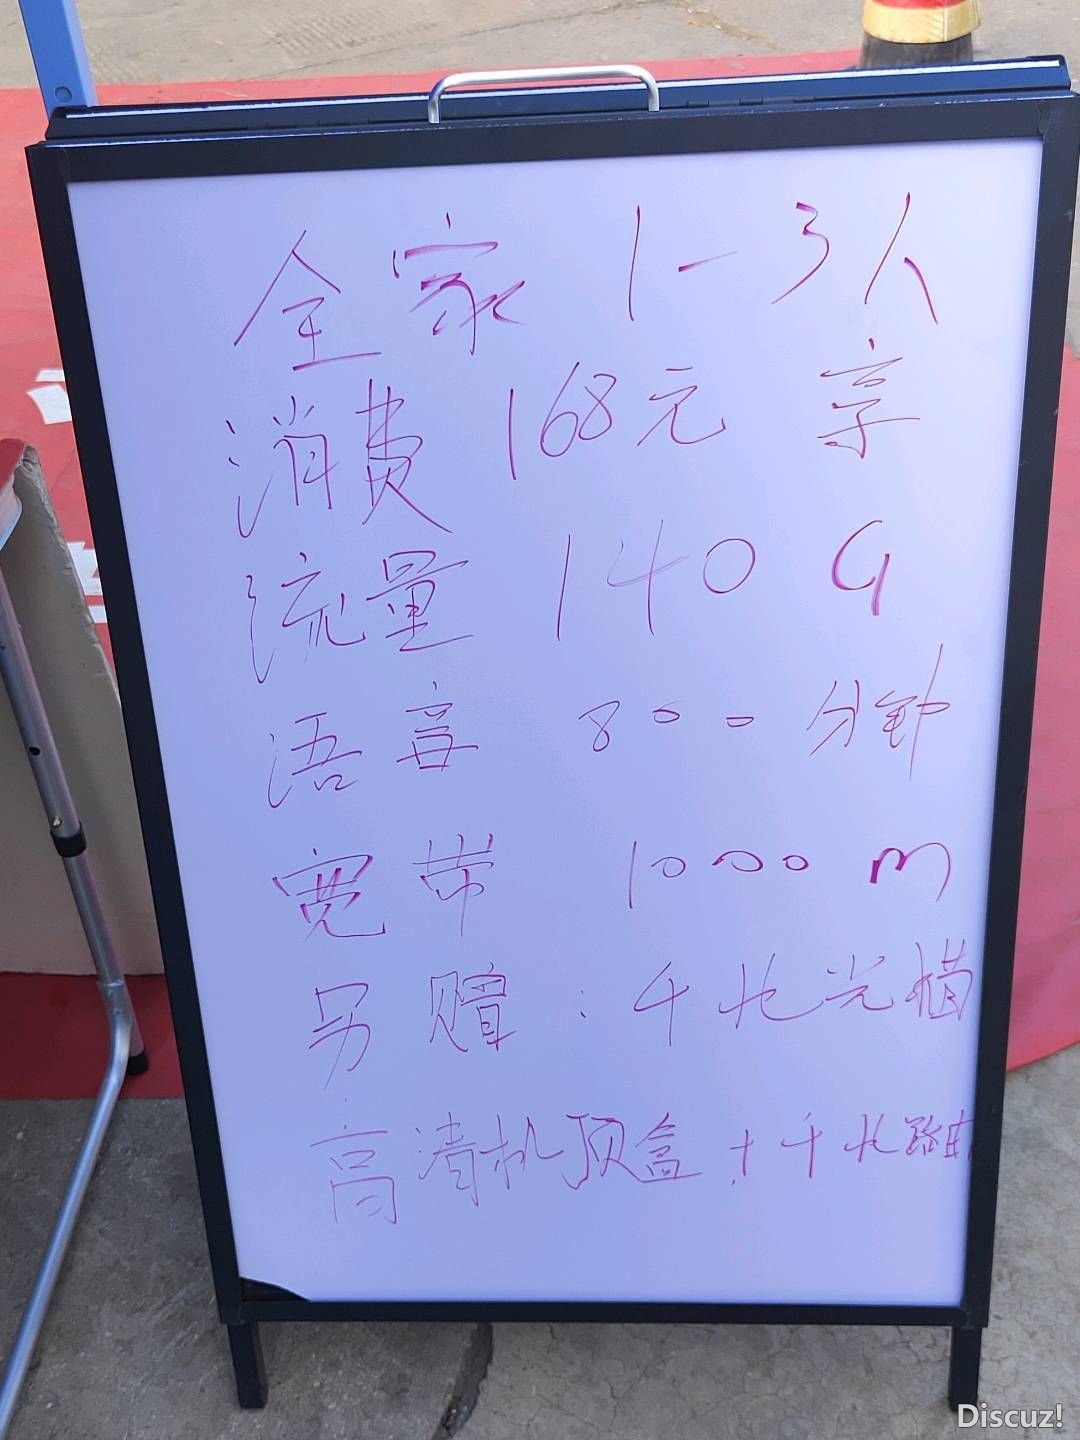 全家 1-3人
消费 168元 享
流量 140 G
语音 800 分钟
宽带 1000 m
另赠：千兆光猫
高清机顶盒+千兆路由
Discuz!